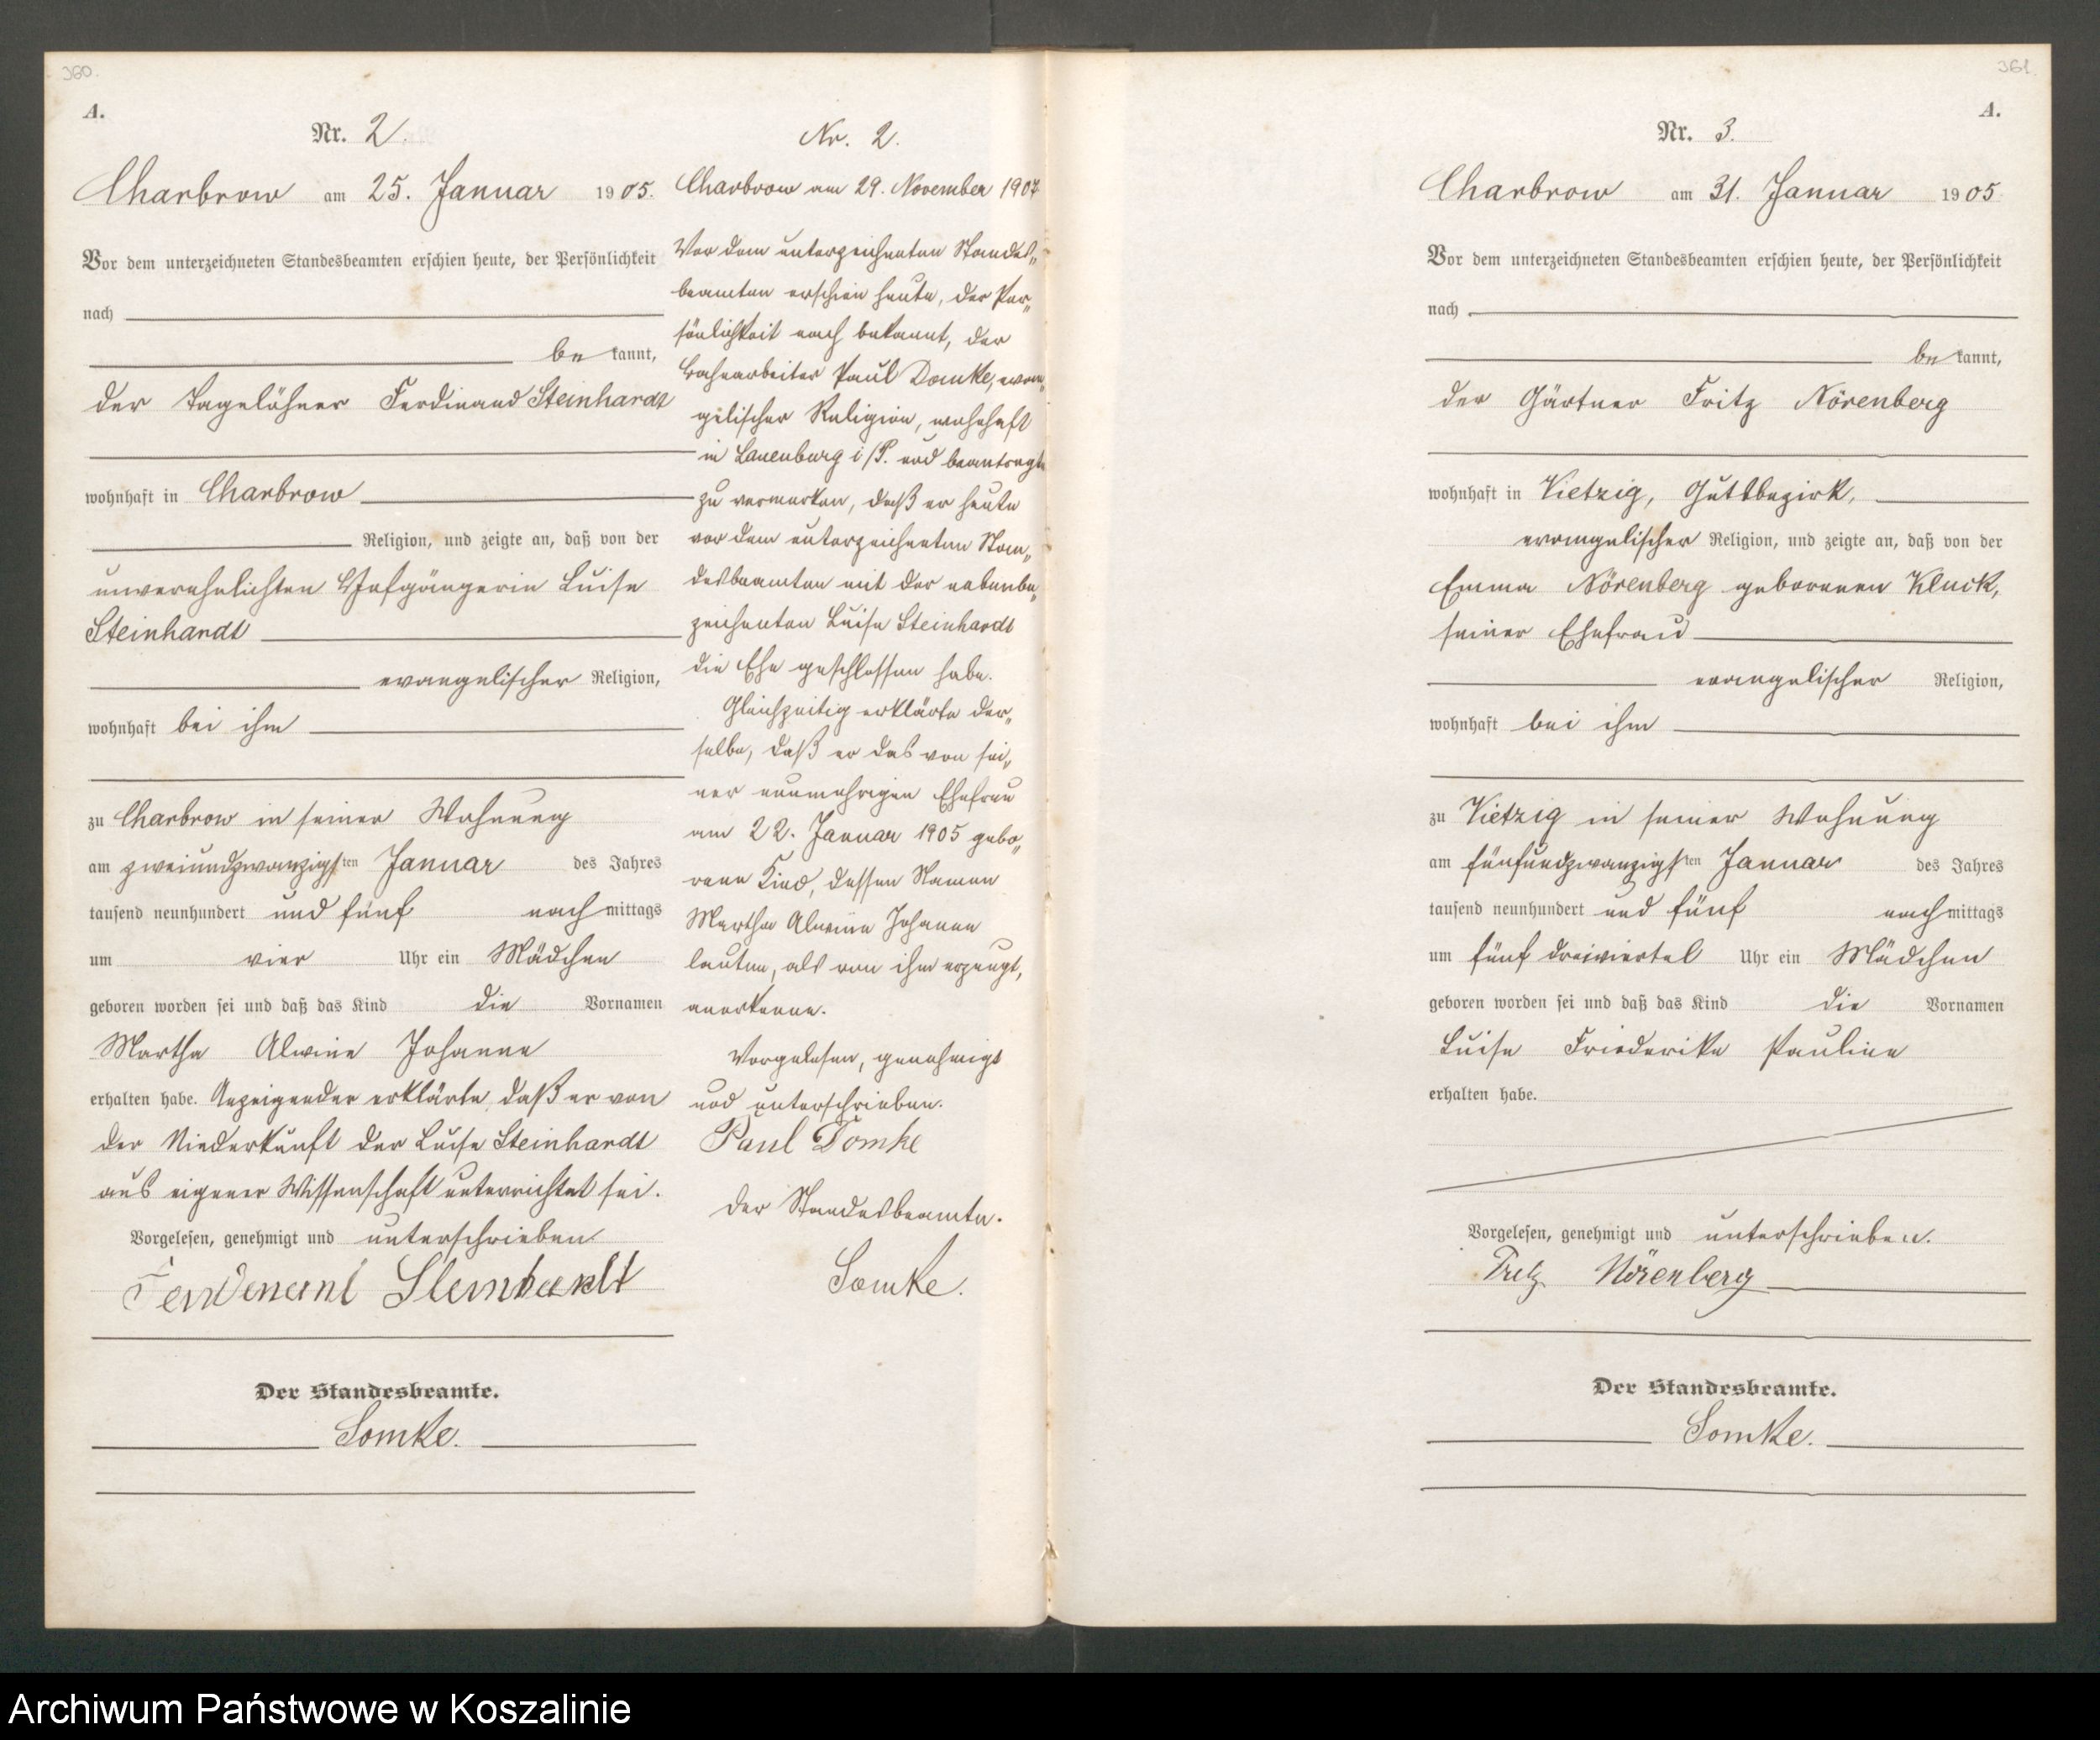 360.
A.
Nr. 2.
Charbrow am 25. Januar 1905.
Vor dem unterzeichneten Standesbeamten erschien heute, der Persönlichkeit
nach
be kannt,
der Tagelöhner Ferdinand Steinhardt
wohnhaft in Charbrow
Religion, und zeigte an, daß von der
unverehelichten Hofgängerin Luise
Steinhardt
evangelischer Religion,
wohnhaft bei ihm
zu Charbrow in seiner Wohnung
am zweiundzwanzigsten Januar des Jahres
tausend neunhundert und fünf nachmittags
um vier Uhr ein Mädchen
geboren worden sei und daß das Kind die Vornamen
Martha Alwine Johanne
erhalten habe. Anzeigender erklärte, daß er von
der Niederkunft der Luise Steinhardt
aus eigener Wissenschaft unterrichtet sei.
Vorgelesen, genehmigt und unterschrieben
Ferdinand Steinhardt
Der Standesbeamte.
Somke.
Nr. 2.
Charbrow am 29. November 1907
Vor dem unterzeichneten Standes„
beamten erschien heute, der Per„
sönlichkeit nach bekannt, der
Bahnarbeiter Paul Domke, evan„
gelischer Religion, wohnhaft
in Lauenburg i/P. und beantragte
zu vermerken, daß er heute
vor dem unterzeichneten Stan„
desbeamten mit der nebenbe„
zeichneten Luise Steinhardt
die Ehe geschlossen habe.
Gleichzeitig erklärte der„
selbe, daß er das von sei„
ner nunmehrigen Ehefrau
am 22. Januar 1905 gebo„
rene Kind, dessen Namen
Martha Alwine Johanne
lauten, als von ihm erzeugt,
anerkenne.
Vorgelesen, genehmigt
und unterschrieben.
Paul Domke
Der Standesbeamte.
Somke.
361.
A.
Nr. 3.
Charbrow am 31. Januar 1905
Vor dem unterzeichneten Standesbeamten erschien heute, der Persönlichkeit
nach
be kannt,
der Gärtner Fritz Nörenberg
wohnhaft in Vietzig, Gutsbezirk,
evangelischer Religion, und zeigte an, daß von der
Emma Nörenberg geborenen Kluck,
seiner Ehefrau
evangelischer Religion,
wohnhaft bei ihm
zu Vietzig in seiner Wohnung
am fünfundzwanzigsten Januar des Jahres
tausend neunhundert und fünf nachmittags
um fünf dreiviertel Uhr ein Mädchen
geboren worden sei und daß das Kind die Vornamen
Luise Friederike Pauline
erhalten habe.
Vorgelesen, genehmigt und unterschrieben.
Fritz Nörenberg
Der Standesbeamte.
Somke.
Archiwum Państwowe w Koszalinie